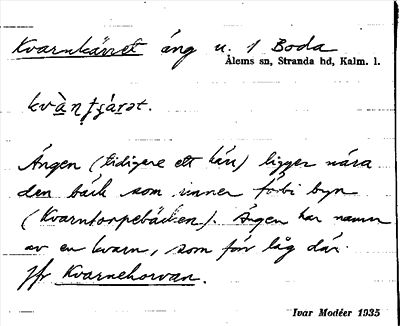 Kvarnkärret äng u. 1 Boda
Ålems sn, Stranda hd, Kalm. l.
Ängen (tidigare ett kärr) ligger nära
den bäck som rinner förbi byn
(Kvarntorpebäcken). Ängen har namn
av en kvarn, som förr låg där.
Jfr Kvarnehorvan.
Ivar Modéer 1935